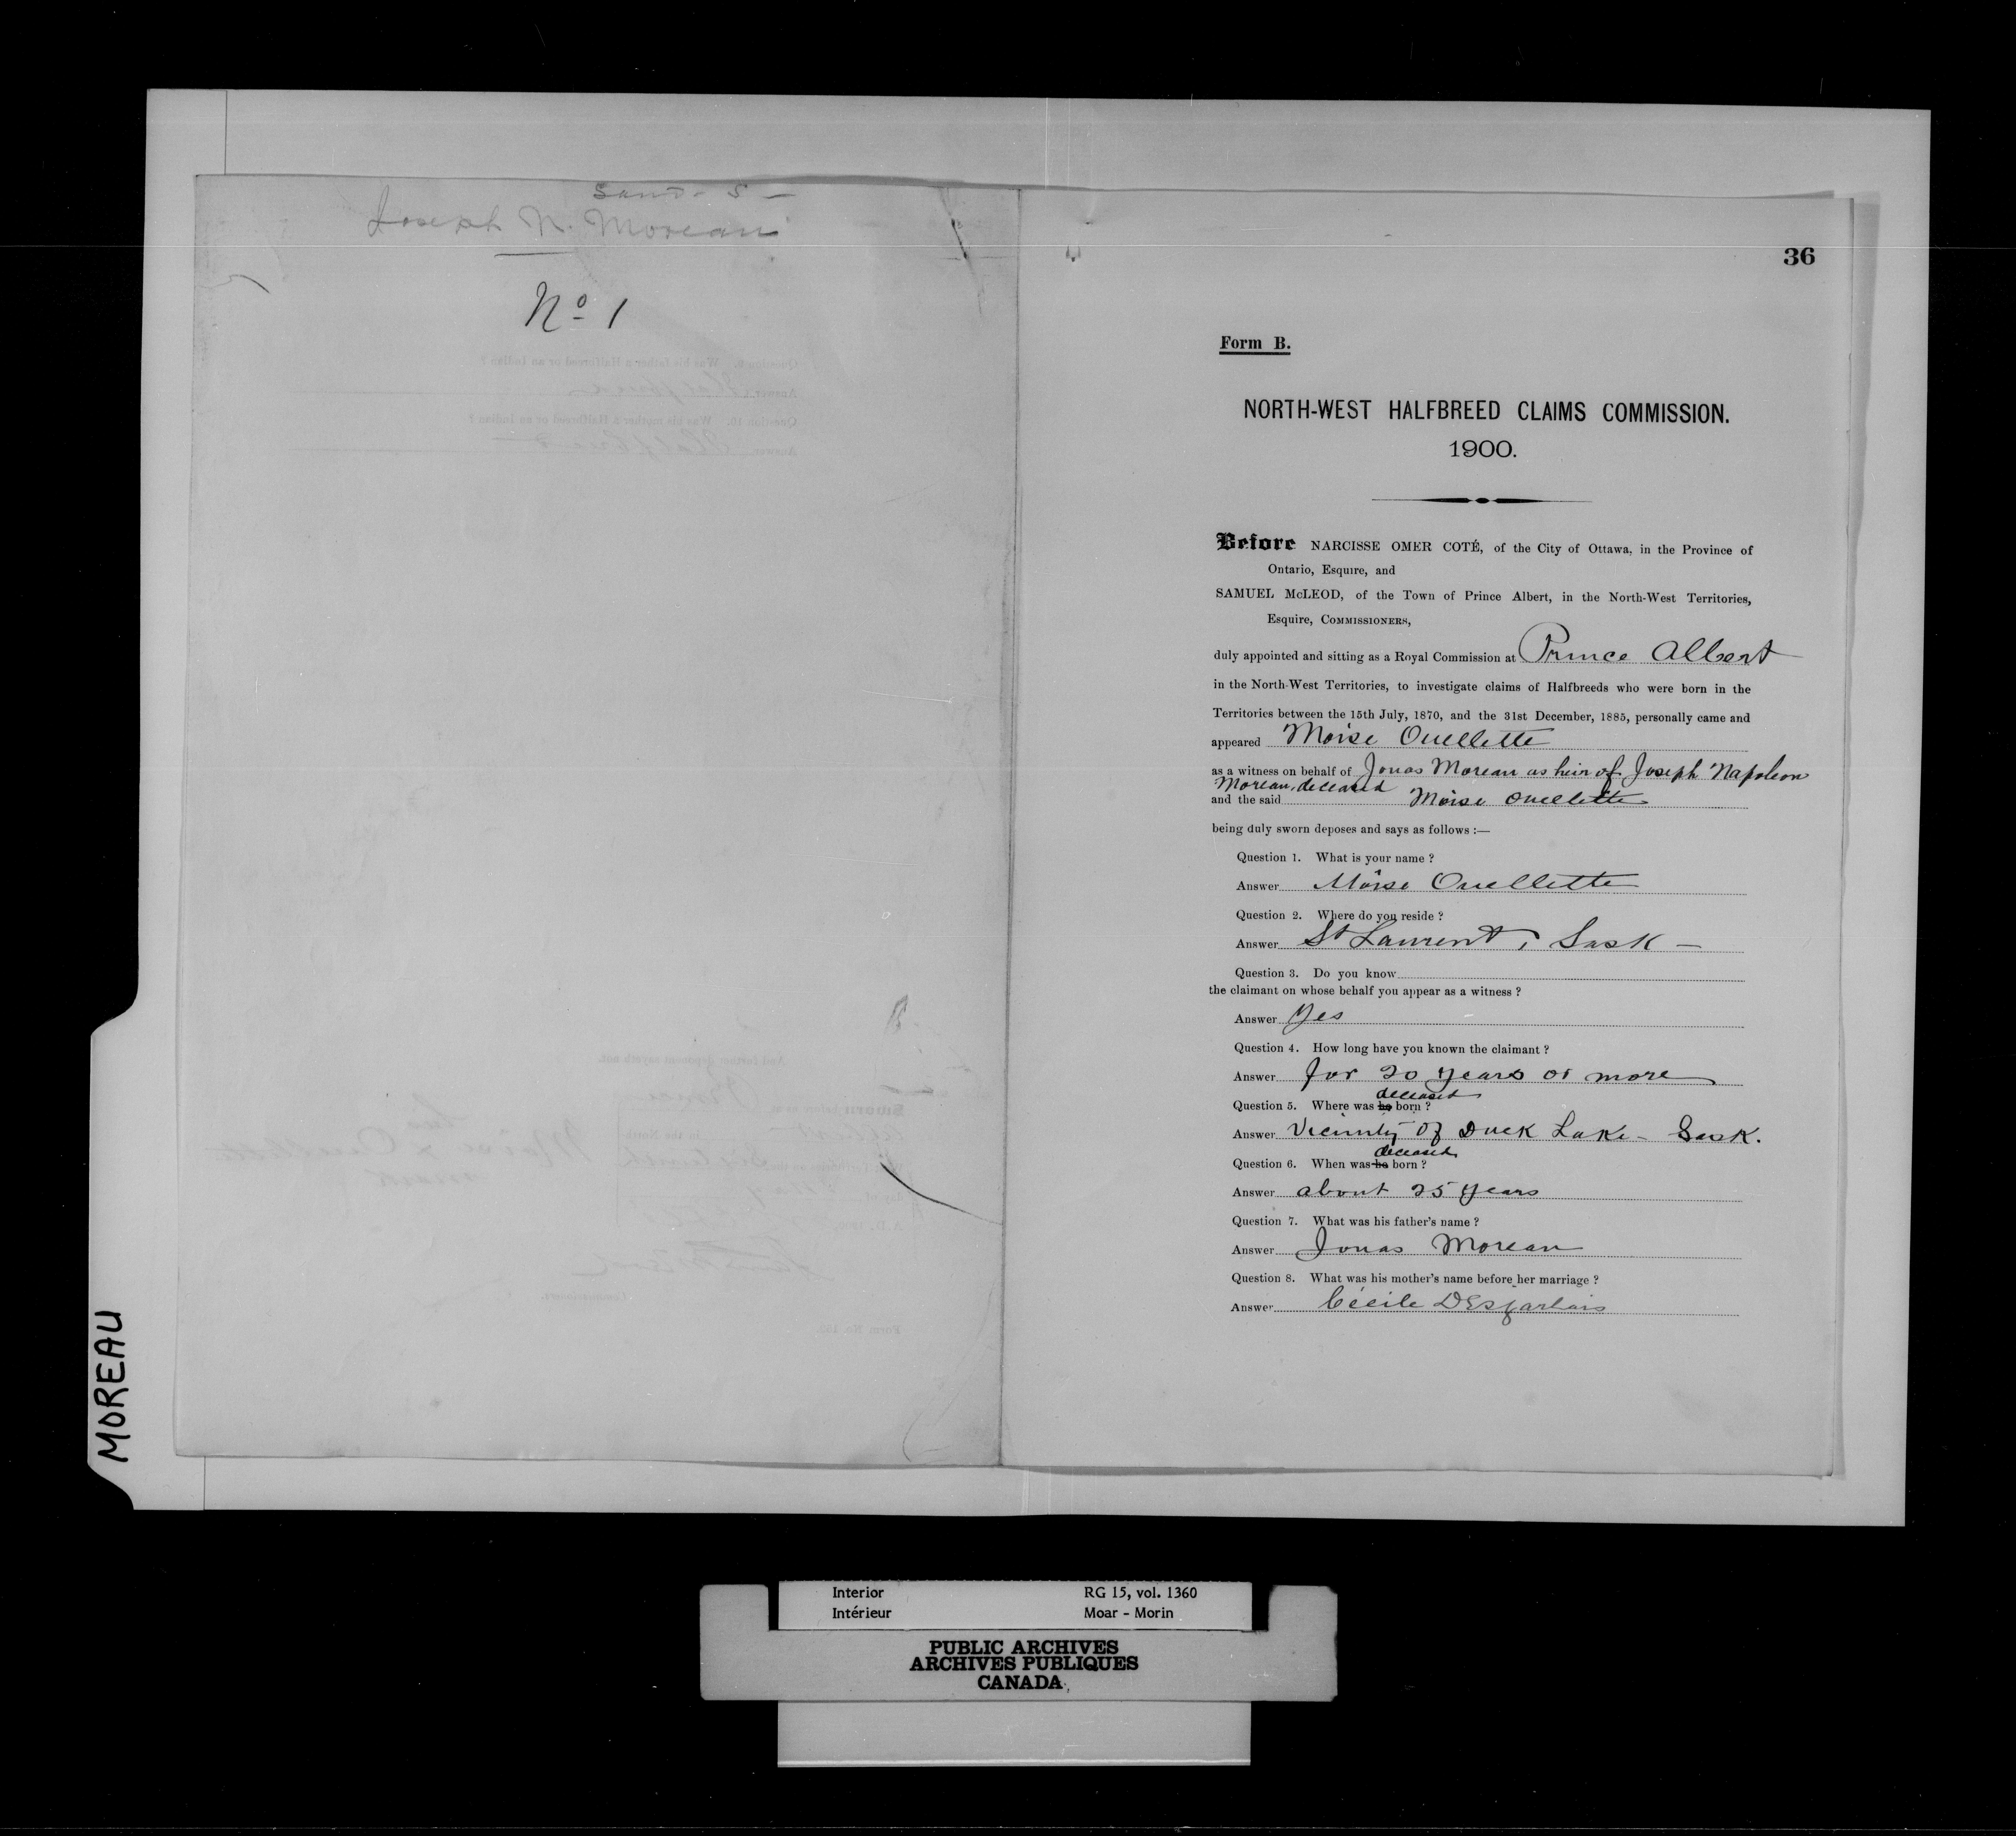 Sand - 5 -
Joseph N. Moreau
No 1
MOREAU
36
Form B.
NORTH-WEST HALFBREED CLAIMS COMMISSION.
1900.
Before NARCISSE OMER COTÉ, of the City of Ottawa, in the Province of
Ontario, Esquire, and
SAMUEL McLEOD, of the Town of Prince Albert, in the North-West Territories,
Esquire, COMMISSIONERS,
duly appointed and sitting as a Royal Commission at Prince Albert
in the North-West Territories, to investigate claims of Halfbreeds who were born in the
Territories between the 15th July, 1870, and the 31st December, 1885, personally came and
appeared Moïse Ouellette
as a witness on behalf of Jonas Moreau as heir of Joseph Napoleon
Moreau, deceased
and the said Moïse Ouellette
being duly sworn deposes and says as follows :—
Question 1. What is your name ?
Answer Moïse Ouellette
Question 2. Where do you reside ?
Answer St Laurent, Sask —
Question 3. Do you know
the claimant on whose behalf you appear as a witness ?
Answer Yes
Question 4. How long have you known the claimant ?
Answer for 20 years or more
deceased
Question 5. Where was he born ?
Answer Vicinity of Duck Lake - Sask.
deceased
Question 6. When was he born ?
Answer about 25 years
Question 7. What was his father's name ?
Answer Jonas Moreau
Question 8. What was his mother's name before her marriage ?
Answer Cécile Desjarlais
Interior RG 15, vol. 1360
Intérieur Moar - Morin
PUBLIC ARCHIVES
ARCHIVES PUBLIQUES
CANADA